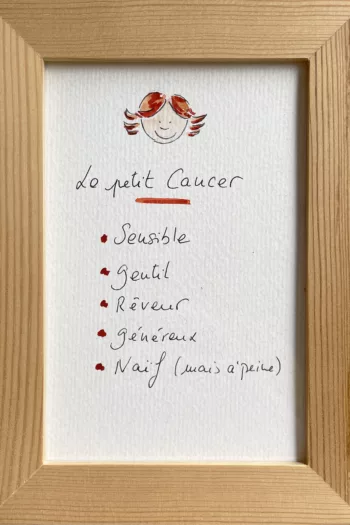 Le petit Cancer
• Sensible
• Gentil
• Rêveur
• Généreux
• Naïf (mais à peine)